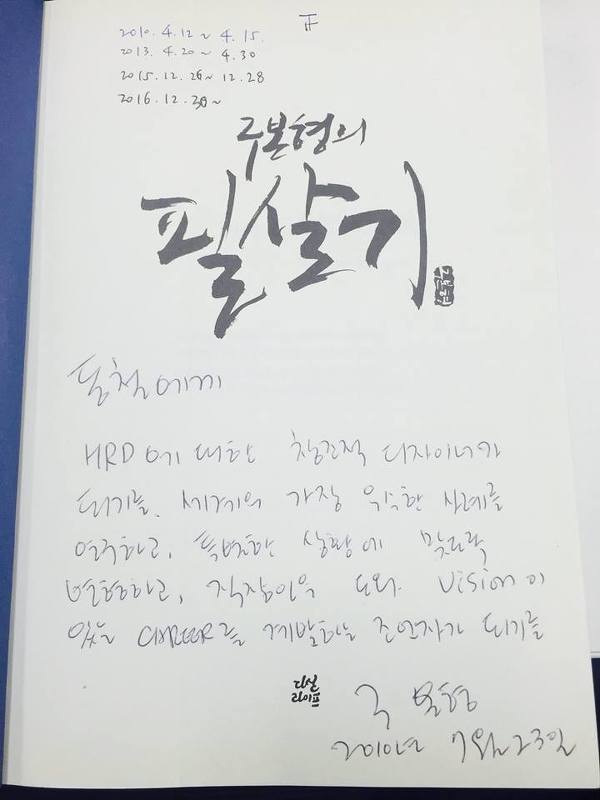 2010. 4. 12 ~ 4. 15.
2013. 4. 20 ~ 4. 30
2015. 12. 26 ~ 12. 28
2016. 12. 30 ~
구본형의
필살기
에게
HRD에 대한 창조적 디자이너가
되기를. 세계의 가장 우수한 사례를
연구하고, 특별한 상황에 맞도록
변형하고, 직장인을 도와 Vision이
있는 CAREER를 계발하는 조언자가 되기를
다산
라이프
구본형
2010년 7월 23일